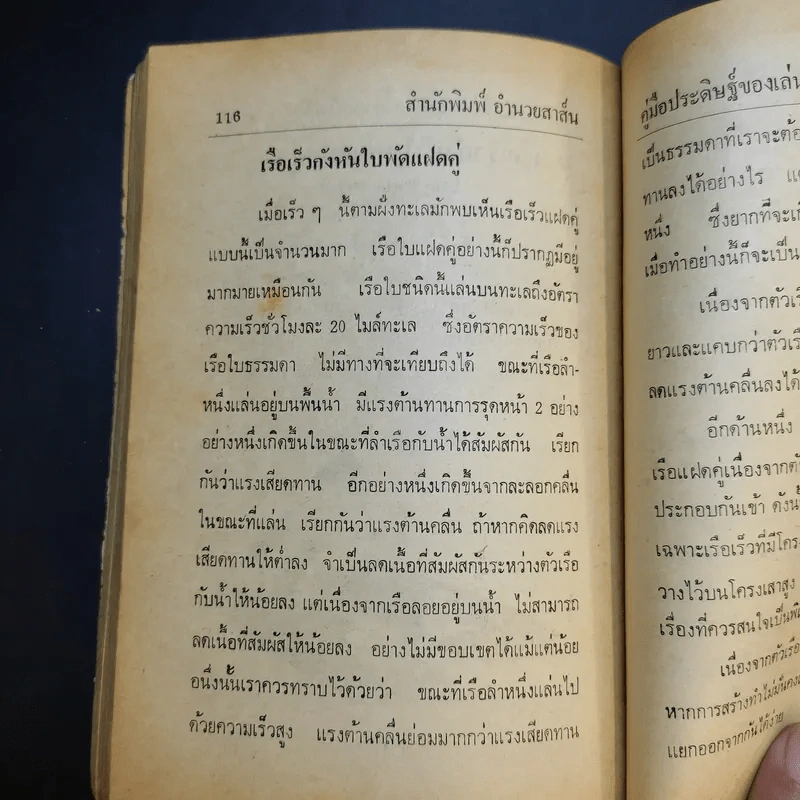 116
สำนักพิมพ์ อำนวยสาส์น
เรือเร็วกังหันใบพัดแฝดคู่
เมื่อเร็ว ๆ นี้ตามฝั่งทะเลมักพบเห็นเรือเร็วแฝดคู่
แบบนี้เป็นจำนวนมาก เรือใบแฝดคู่อย่างนี้ก็ปรากฏมีอยู่
มากมายเหมือนกัน เรือใบชนิดนี้แล่นบนทะเลถึงอัตรา
ความเร็วชั่วโมงละ 20 ไมล์ทะเล ซึ่งอัตราความเร็วของ
เรือใบธรรมดา ไม่มีทางที่จะเทียบถึงได้ ขณะที่เรือลำ-
หนึ่งแล่นอยู่บนพื้นน้ำ มีแรงต้านทานการรุดหน้า 2 อย่าง
อย่างหนึ่งเกิดขึ้นในขณะที่ลำเรือกับน้ำได้สัมผัสกัน เรียก
กันว่าแรงเสียดทาน อีกอย่างหนึ่งเกิดขึ้นจากละลอกคลื่น
ในขณะที่แล่น เรียกกันว่าแรงต้านคลื่น ถ้าหากคิดลดแรง
เสียดทานให้ต่ำลง จำเป็นลดเนื้อที่สัมผัสกันระหว่างตัวเรือ
กับน้ำให้น้อยลง แต่เนื่องจากเรือลอยอยู่บนน้ำ ไม่สามารถ
ลดเนื้อที่สัมผัสให้น้อยลง อย่างไม่มีขอบเขตได้แม้แต่น้อย
อนึ่งนั้นเราควรทราบไว้ด้วยว่า ขณะที่เรือลำหนึ่งแล่นไป
ด้วยความเร็วสูง แรงต้านคลื่นย่อมมากกว่าแรงเสียดทาน
คู่มือประดิษฐ์ของเล่น
เป็นธรรมดาที่เราจะต้อ
ทานลงได้อย่างไร
หนึ่ง ซึ่งยากที่จะเกิ
เมื่อทำอย่างนี้ก็จะเป็น
เนื่องจากตัวเรื
ยาวและแคบกว่าตัวเรื
ลดแรงต้านคลื่นลงได้
อีกด้านหนึ่ง
เรือแฝดคู่เนื่องจากตั
ประกอบกันเข้า ดังนั้
เฉพาะเรือเร็วที่มีโคร
วางไว้บนโครงเสาสูง
เรื่องที่ควรสนใจเป็นพิ
เนื่องจากตัวเรือ
หากการสร้างทำไม่มั่นคง
แยกออกจากกันได้ง่าย